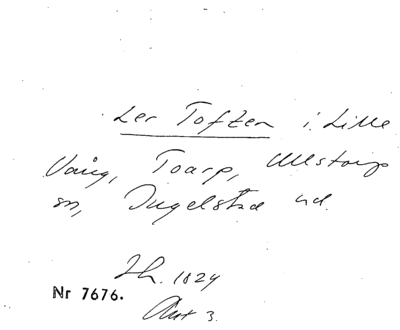 Ler Toften i Lille
Vång, Toarp, Ullstorps
sn, Ingelstad hd.
Sk. 1824
Nr 7676.
Akt 3.